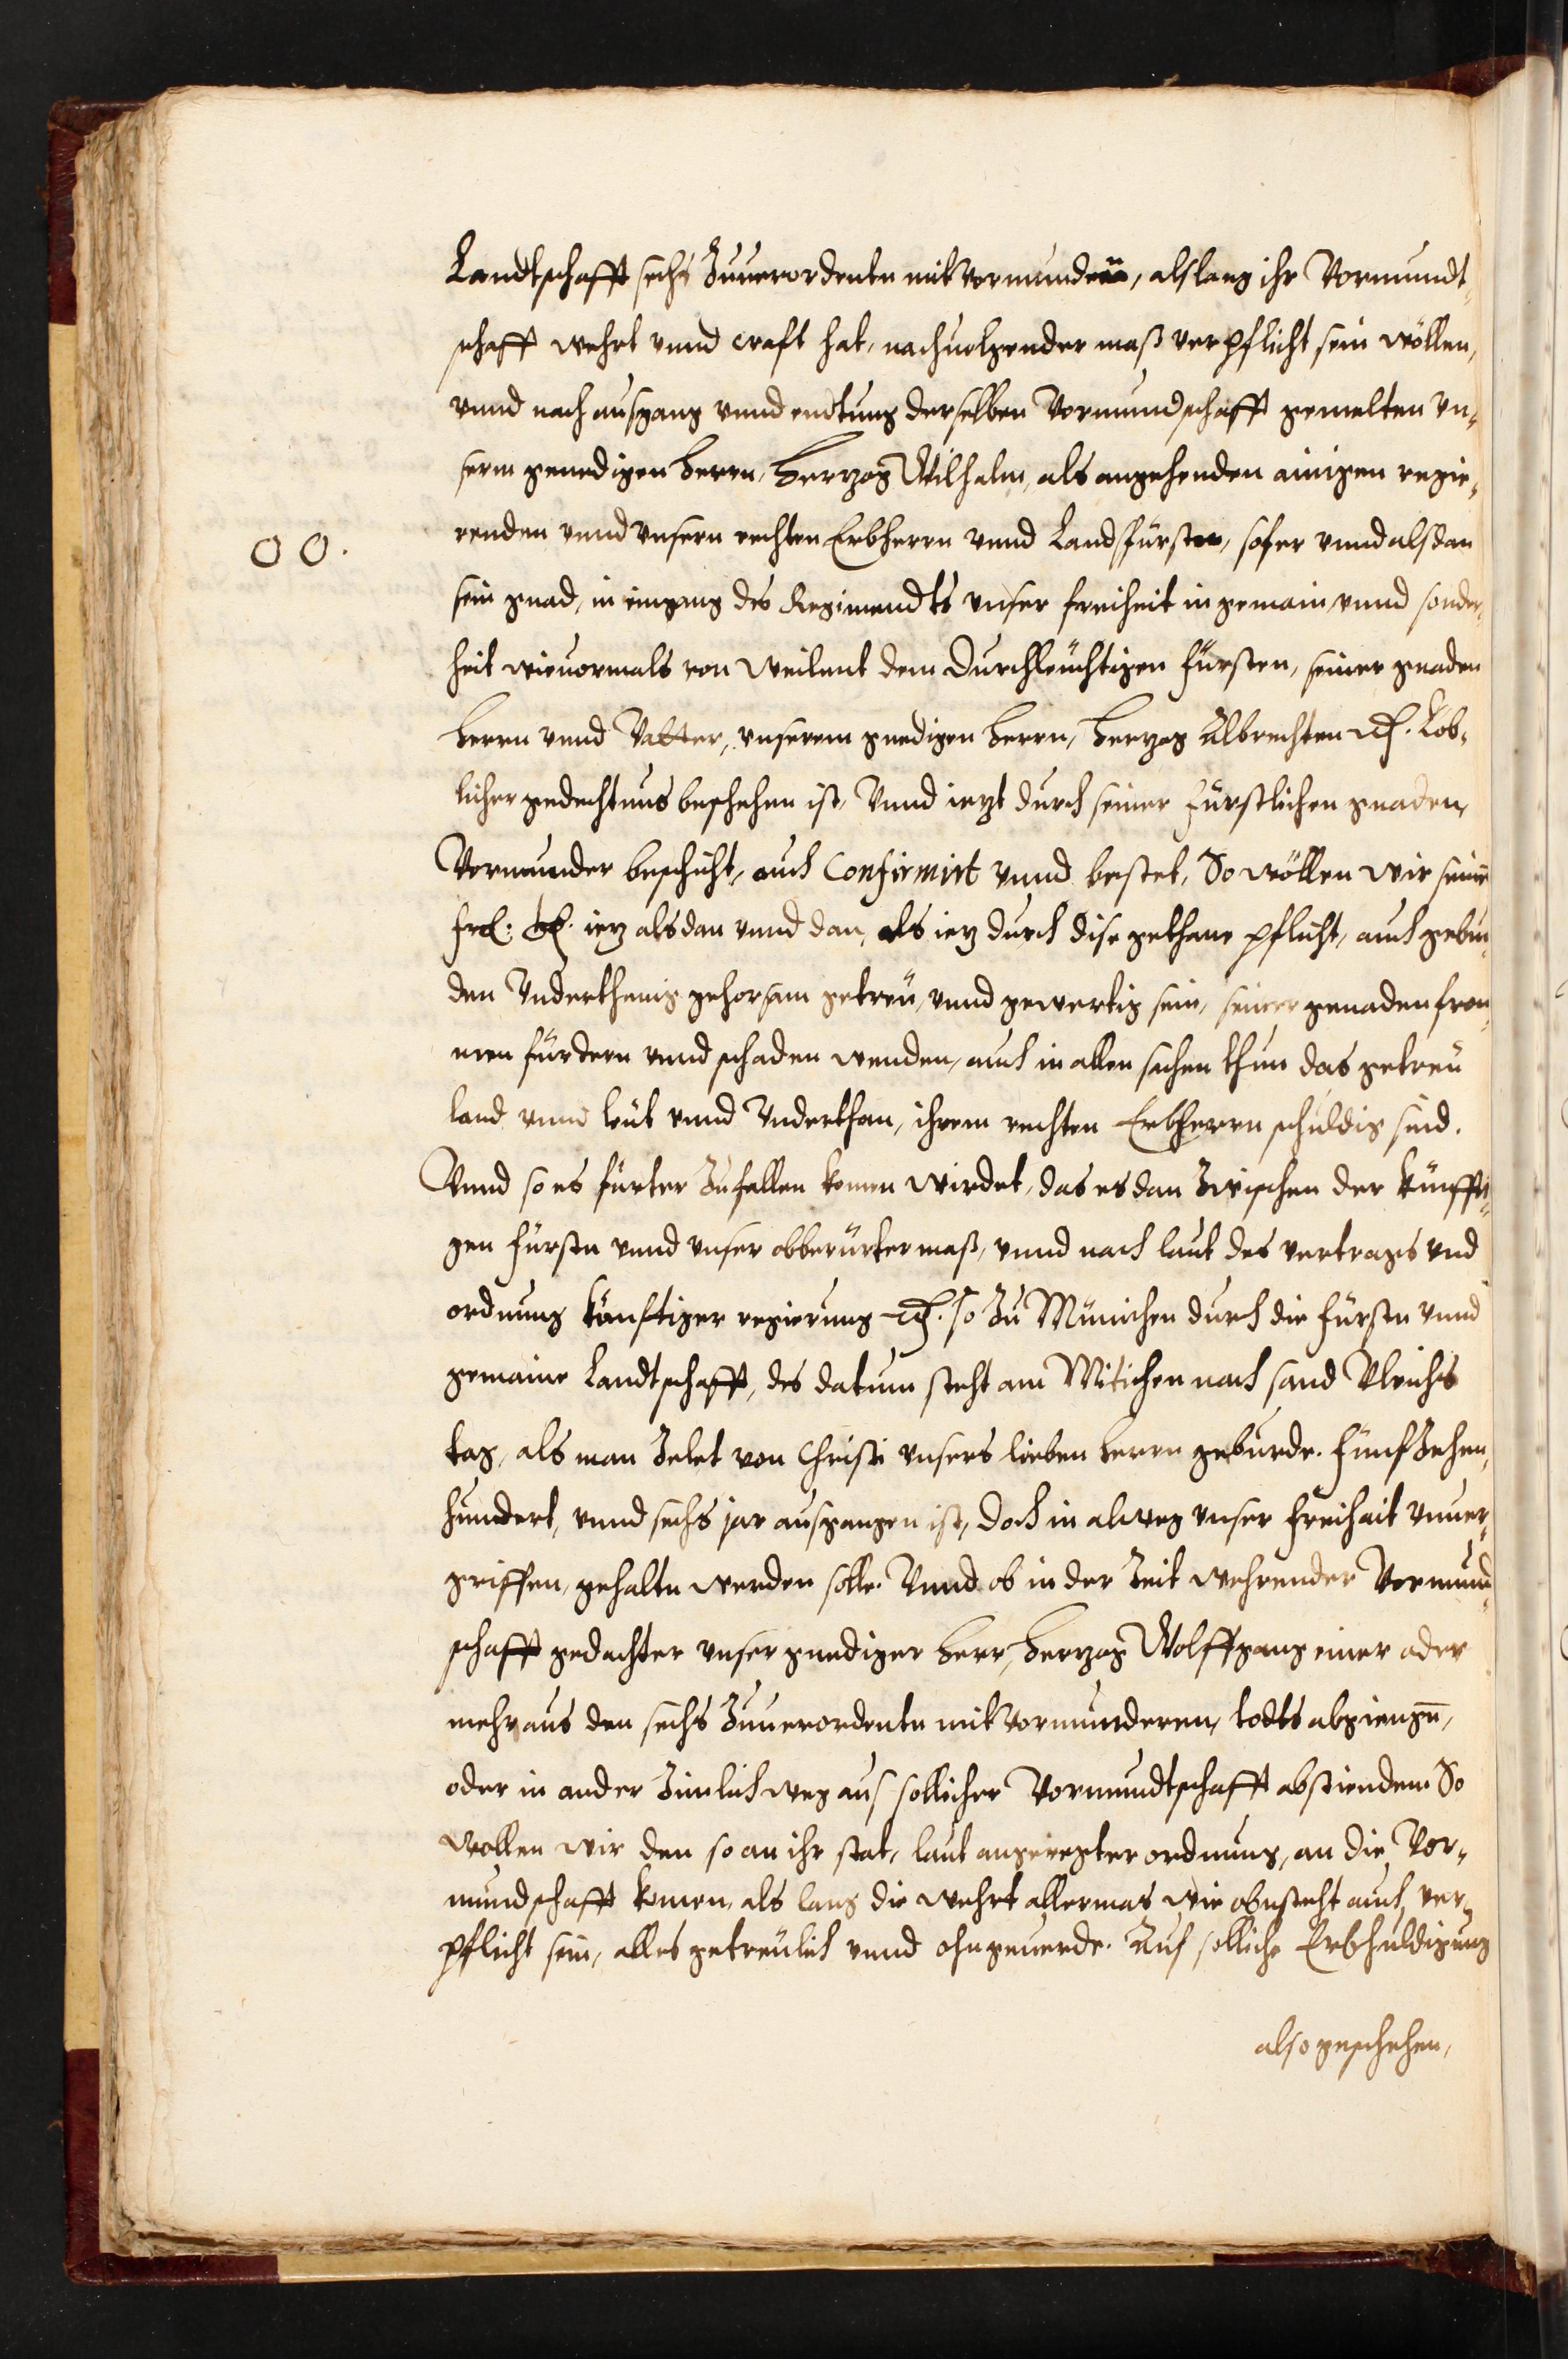 Landtschafft sechs Zuuerordentn mitVormunden, alslang ihr Vormundt-
schafft wehrt vnnd craft hat, nachuolgender maß verpflicht sein wöllen,
vnnd nach ausgang vnnd endtung derselben Vormundschafft gemelten vn-
serm genedigen Herrn, Herrzog Wilhalm, als angehenden ainigen regie-
renden vnnd vnsern rechten Erbherrn vnnd Landsfürsten, sofer vnnd alsdan
00.
sein gnad, in eingang des Regimendts vnser freiheit in gemain, vnnd sonder-
heit wieuormals von weilent dem Durchleuchtigen Fürsten, seiner gnaden
Herrn vnnd Vatter, vnserem gnedigen Herrn, Herzog Albrechten etc. Lob-
licher gedechtnus beschehen ist, Vnnd iezt durch seiner Fürstlichen gnaden,
Vormunder beschicht, auch Confirmirt vnnd bestet, So wöllen wir seinen
frl: iez alsdan vnnd dan, als iez durch dise gethane pflicht, auch gebun-
den Vnderthenig gehorsam getreu, vnnd gewertig sein, seiner genaden from-
men fürdern vnnd schaden wenden, auch in allen sachen thun das getreu
land vnnd leut vnnd Vnderthan, ihrem rechten Erbherrn schuldig sind.
Vnnd so es fürter Zufallen komen wirdet, das es dan Zwischen der künffti-
gen Fürstn vnnd vnser obberürter maß, vnnd nach laut des vertrags vnd
ordnung künftiger regierung etc. so Zu München durch die Fürstn vnnd
gemaine Landtschafft, des datum steht am Mitichen nach sand Vlrichs
tag, als man Zelet von Christi vnsers lieben Herrn geburde. Fünf Zehen-
hundert, vnnd sechs jar ausgangen ist, doch in alweg vnser freihait vnuer-
griffen, gehaltn werden solle. Vnnd ob in der Zeit wehrender Vormund-
schafft gedachter vnser gnediger Herr, Herrzog Wolffgang einer oder
mehr aus den sechs Zuuerordentn mitVormunderen, todts abgiengn,
oder in ander Zimlich weg aus sollicher Vormundtschafft abstienden. So
wollen wir den so an ihr stat, laut angeregter ordnung, an die Vor-
mundschafft komen, als lang die wehrt allermas wie obnsteht auch ver-
pflicht sein, alles getreulich vnnd ohngeuerde. Auf solliche Erbhuldigung
also geschehen,